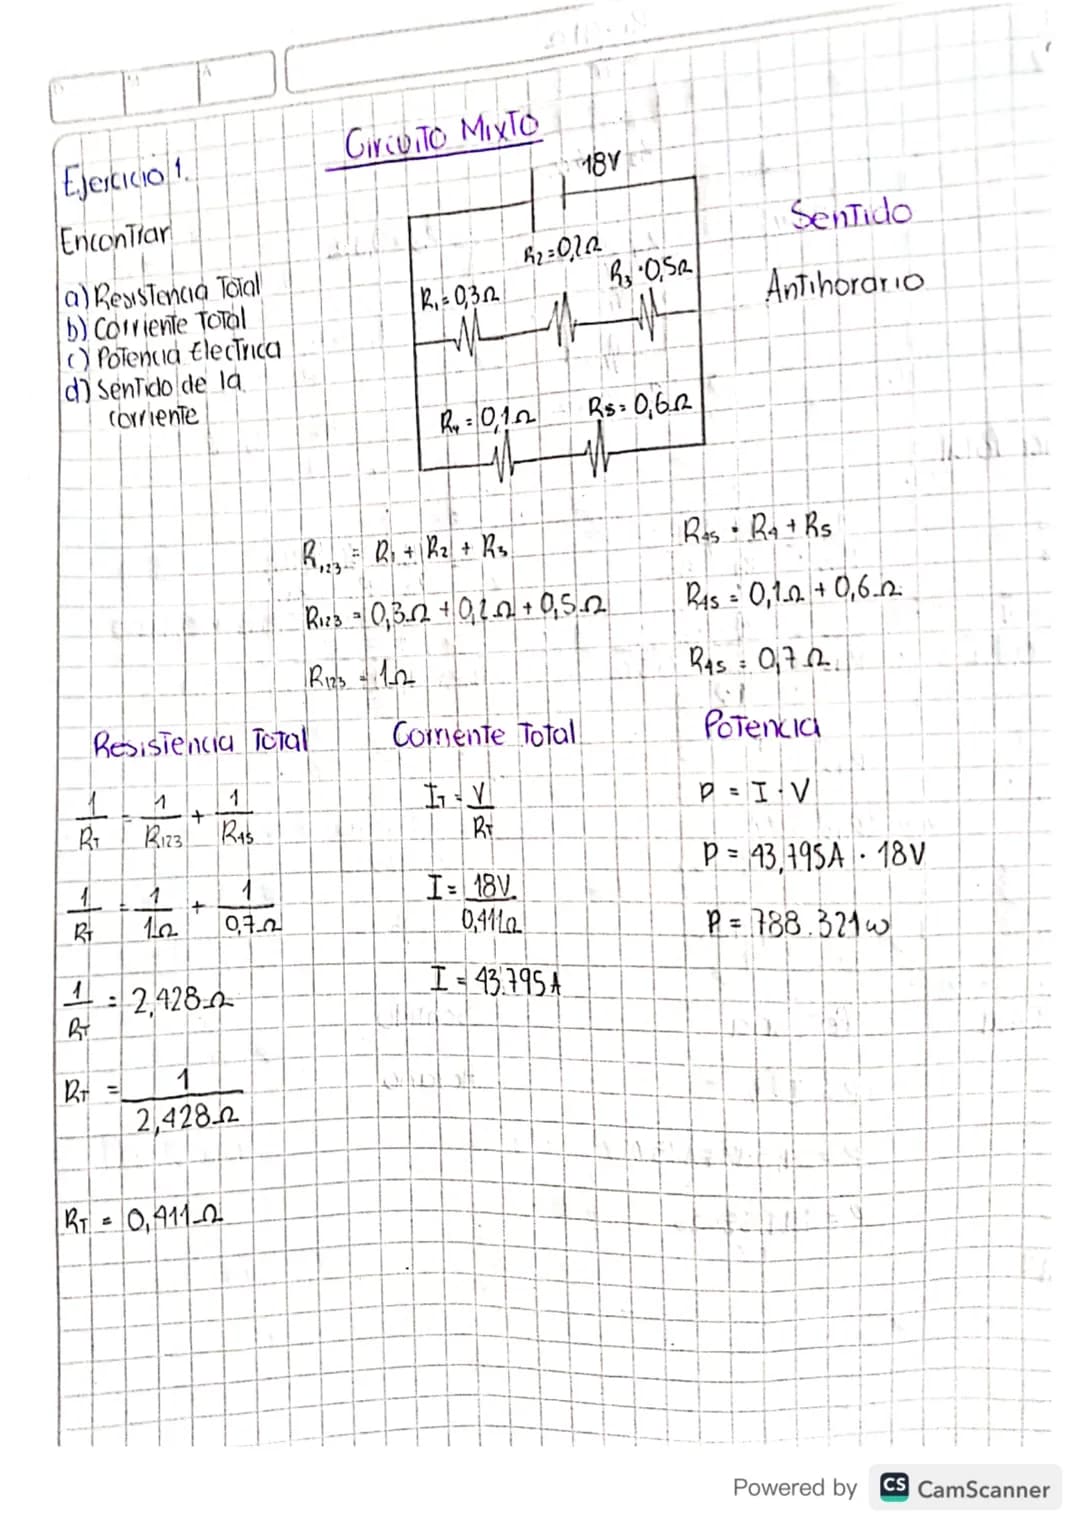 Circuito Mixto
Ejercicio 1.
Encontrar
a) Resistencia Total
b) Corriente Total
c) Potencia Electrica
d) Sentido de la
corriente
18V
R₁ = 0,3Ω
R₂ = 0,2Ω
R₃ · 0,5Ω
R₄ = 0,1Ω
R5 = 0,6Ω
Sentido
Antihorario
R₁₂₃ = R₁ + R₂ + R₃
R₁₂₃ = 0,3Ω + 0,2Ω + 0,5Ω
R₁₂₃ = 1Ω
R₄₅ = R₄ + R5
R₄₅ = 0,1Ω + 0,6Ω
R₄₅ = 0,7Ω.
Resistencia Total
1/RT = 1/R123 + 1/R45
1/RT = 1/1Ω + 1/0,7Ω
1/RT = 2,428Ω
RT = 1/2,428Ω
RT = 0,411Ω
Corriente Total
IT = V/RT
I = 18V/0,411Ω
I = 43.795A
Potencia
P = I · V
P = 43,795A · 18V
P = 788.321w
Powered by CS CamScanner